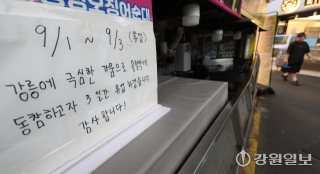 오징어순대
9/1 ~ 9/3 (휴업)
강릉에 극심한 가뭄으로
동참하고자 3일간 휴업 하겠습니다
감사합니다!
강원일보